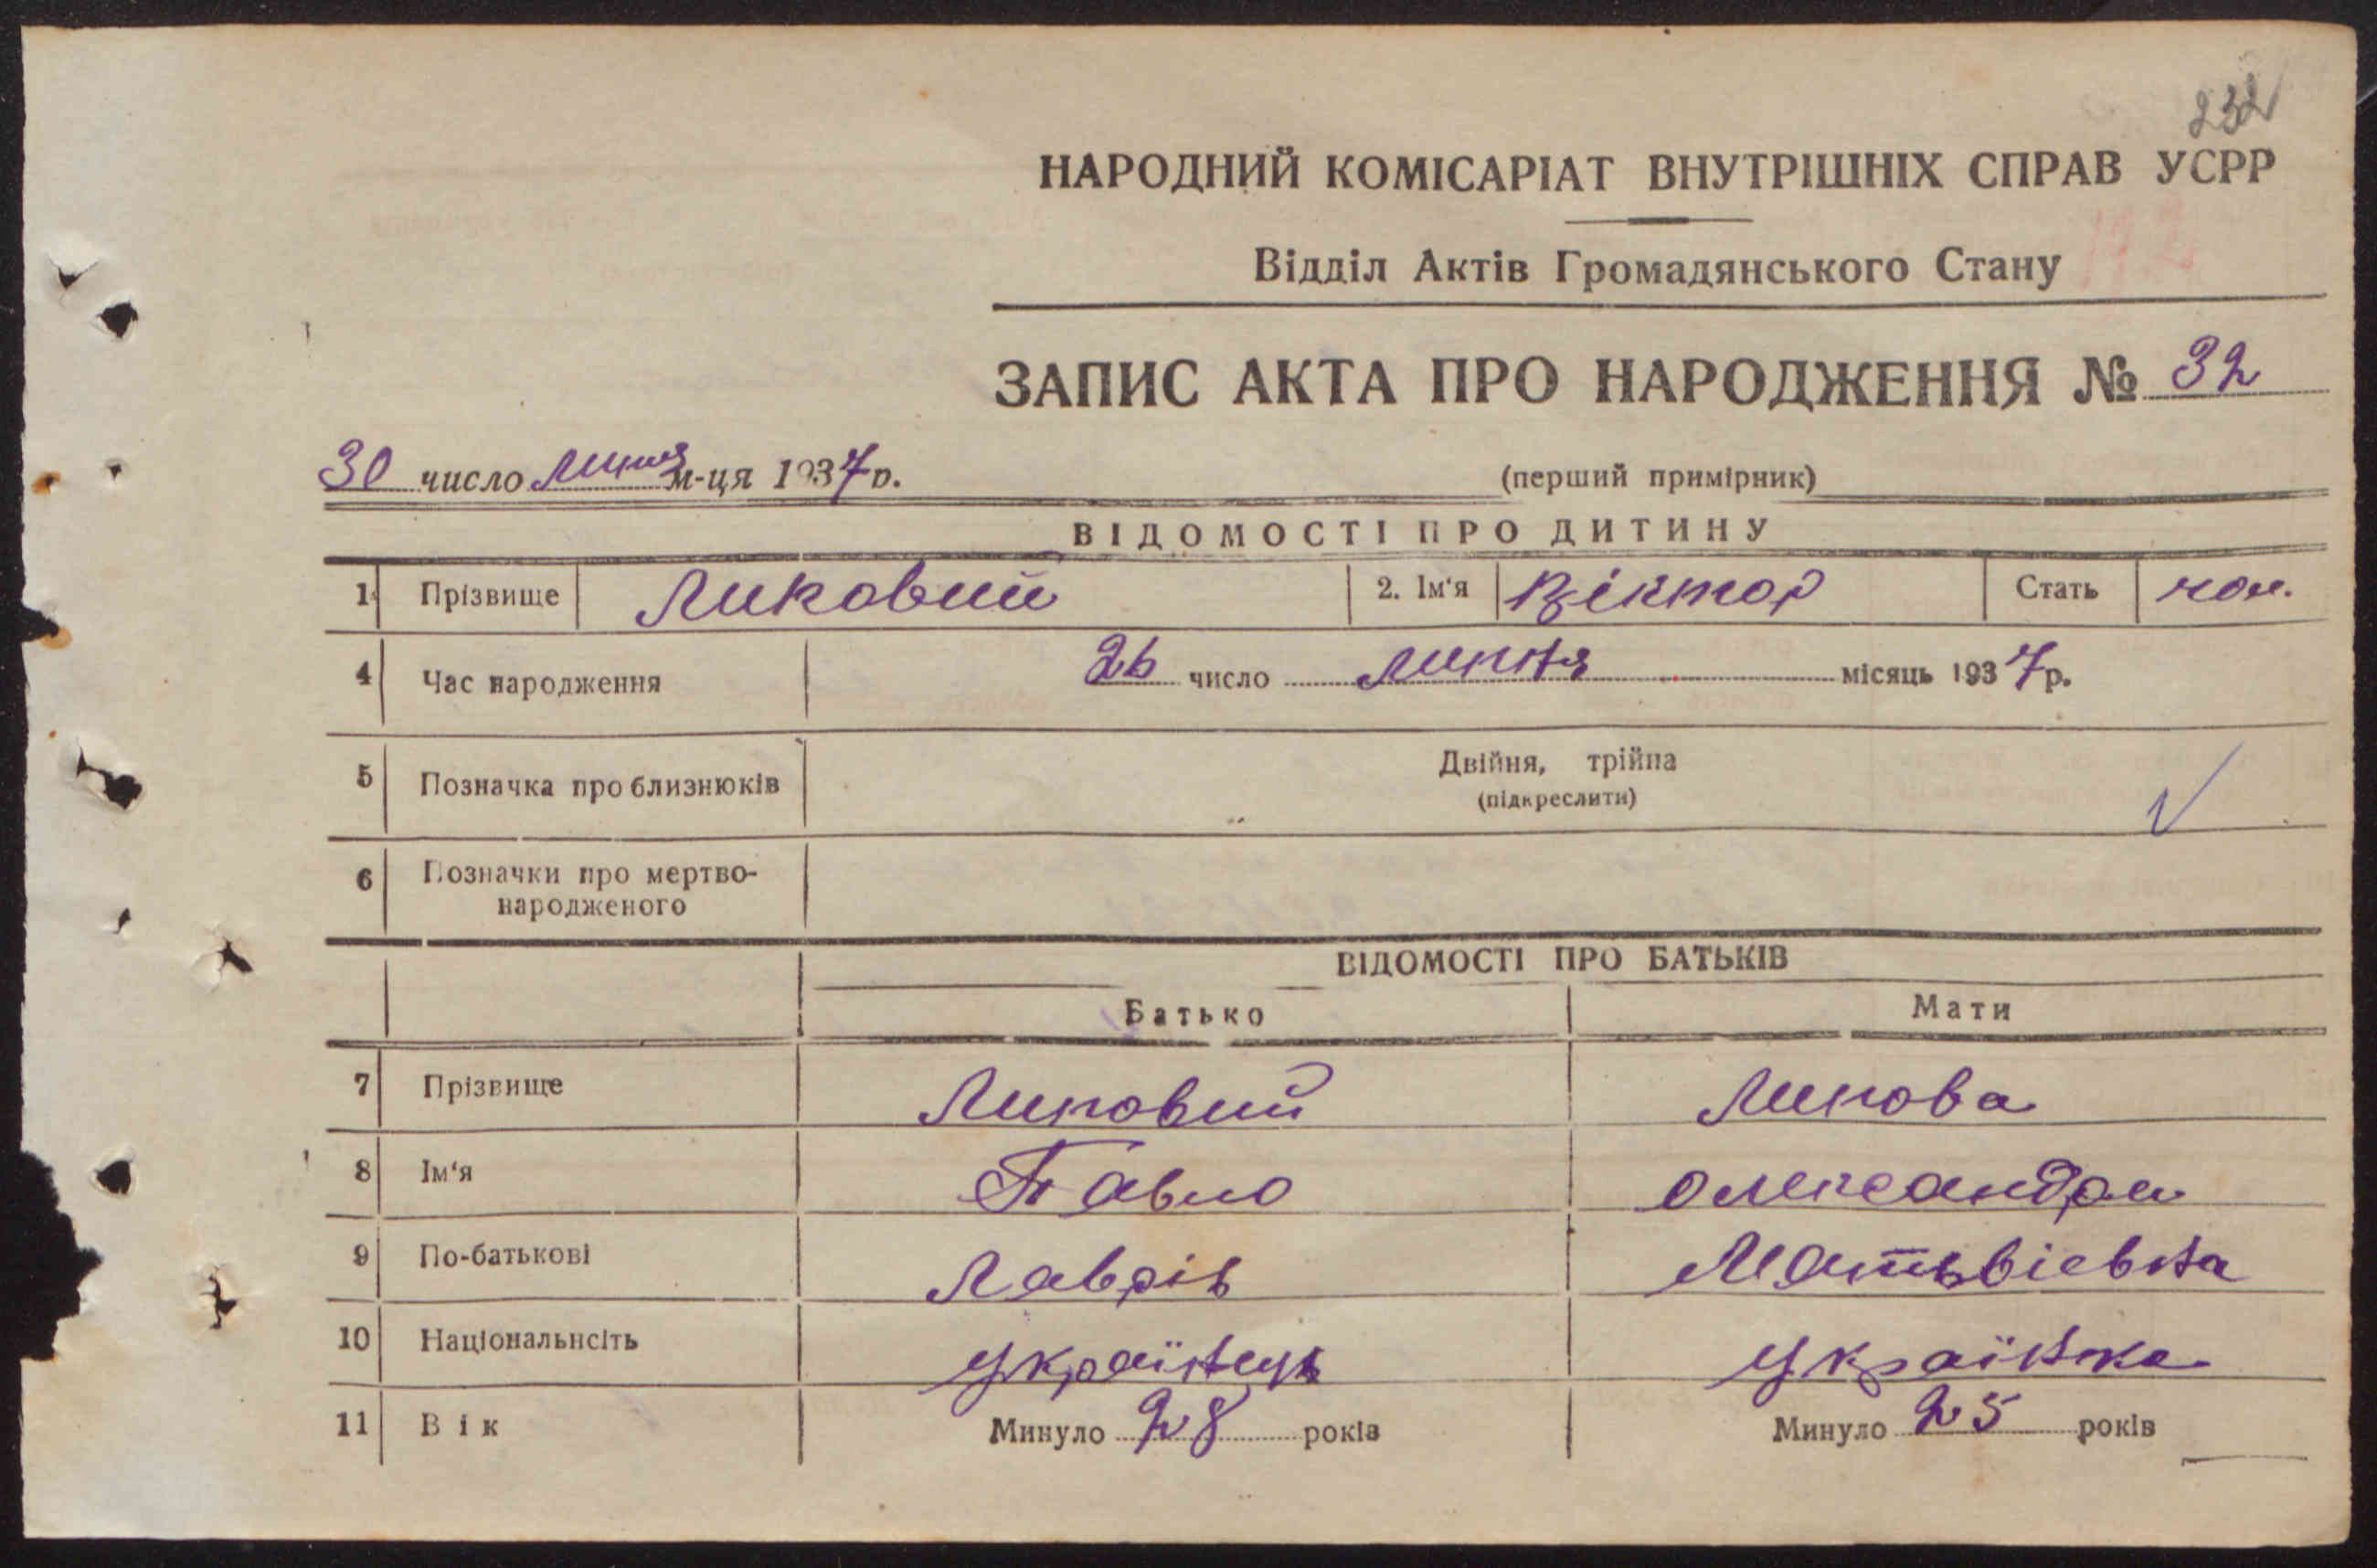 232
НАРОДНИЙ КОМІСАРІАТ ВНУТРІШНІХ СПРАВ УСРР
Відділ Актів Громадянського Стану
ЗАПИС АКТА ПРО НАРОДЖЕННЯ № 32
30 число липня м-ця 1937 р.
(перший примірник)
ВІДОМОСТІ ПРО ДИТИНУ
1 Прізвище Липовий 2. Ім'я Віктор Стать чол.
4 Час народження 26 число липня місяць 1937 р.
5 Позначка про близнюків Двійня, трійня
(підкреслити)
6 Позначки про мертво-
народженого
ВІДОМОСТІ ПРО БАТЬКІВ
Батько Мати
7 Прізвище Липовий Липова
8 Ім'я Павло Олександра
9 По-батькові Лаврів Матьвієвна
10 Національнсіть Українець Українка
11 Вік Минуло 28 років Минуло 25 років